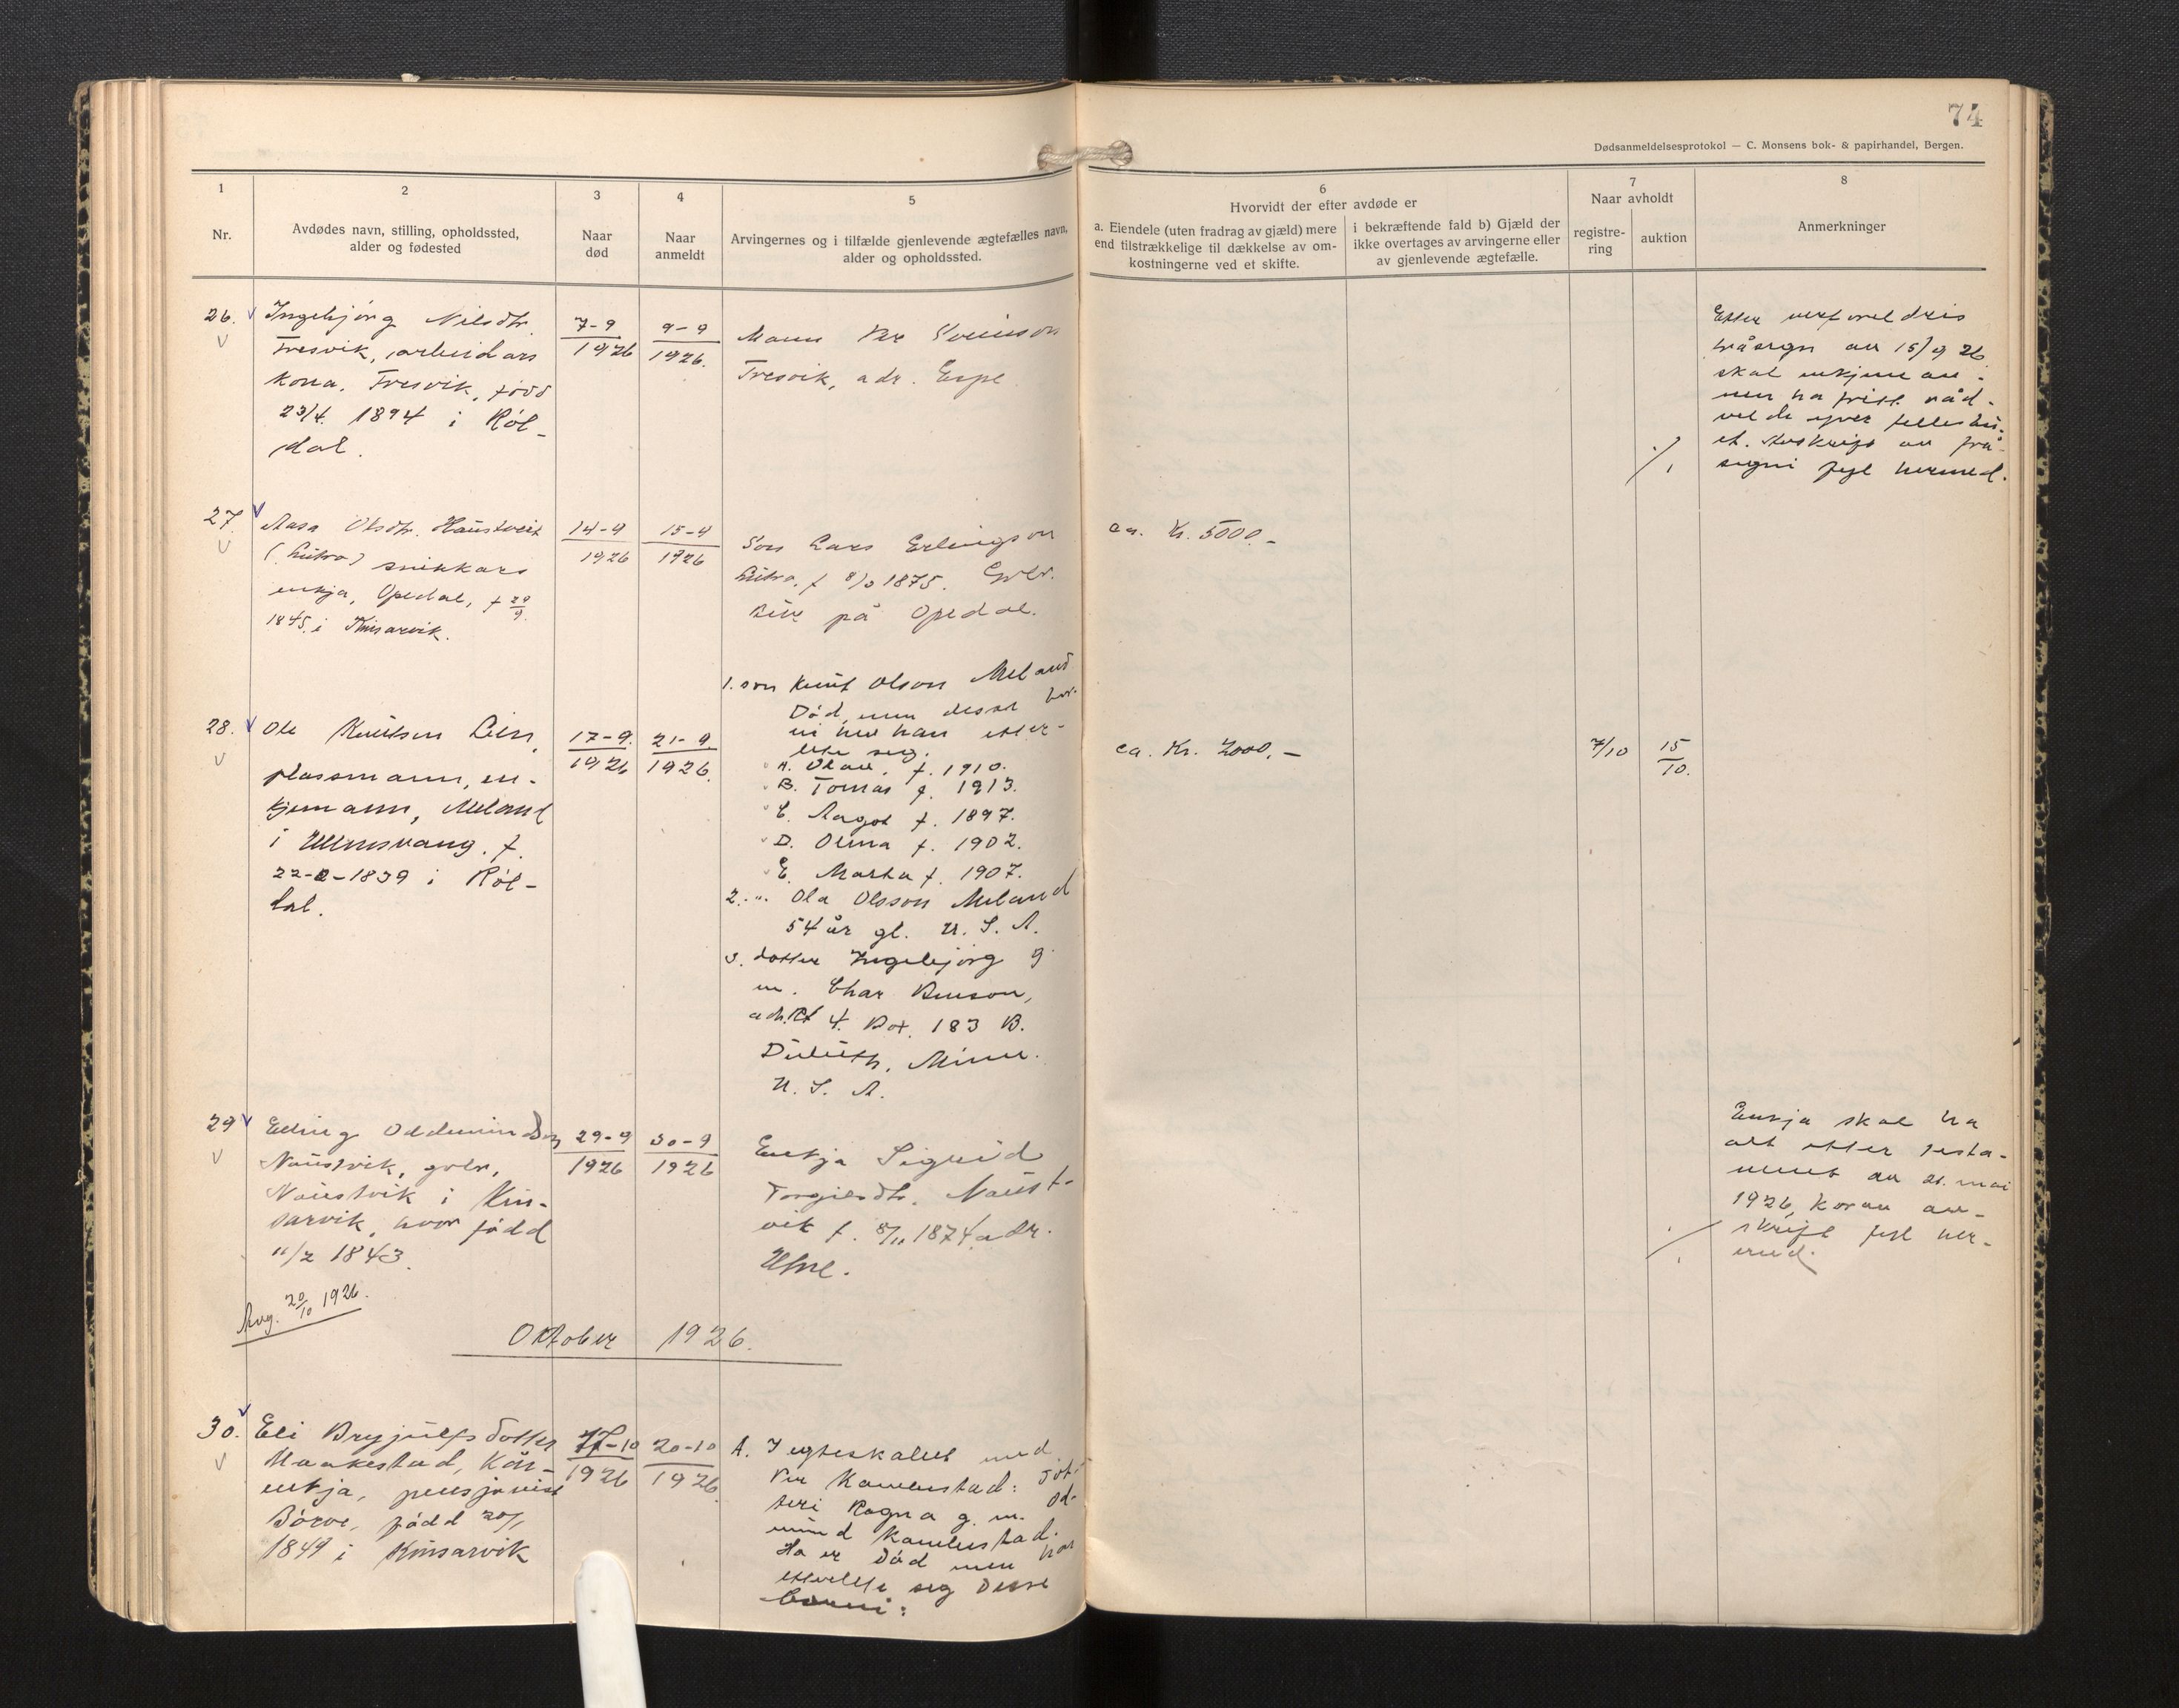 74
Dødsanmeldelsesprotokol — C. Monsens bok- & papirhandel, Bergen.
1
2
3
4
5
6
7
8
Nr.
Avdødes navn, stilling, opholdssted,
alder og fødested
Naar
død
Naar
anmeldt
Arvingernes og i tilfælde gjenlevende ægtefælles navn,
alder og opholdssted.
Hvorvidt der efter avdøde er
a. Eiendele (uten fradrag av gjæld) mere
end tilstrækkelige til dækkelse av om-
kostningerne ved et skifte.
i bekræftende fald b) Gjæld der
ikke overtages av arvingerne eller
av gjenlevende ægtefælle.
Naar avholdt
registre-
ring
auktion
Anmerkninger
26.
Ingebjörg Nilsdtr.
Tresvik, arbeidars
kona, Tresvik, född
23/4. 1894 i Röl-
dal.
7-9
1926
9-9
1926.
Mann Per Sveinson
Tresvik, adr. Espe
Etter
fråsegn av 15/9 26
skal enkjemann-
nen ha fritt råd-
velde yver fellesbu-
et. Avskrift av frå-
segni fyl hermed.
27
Aasa Olsdtr. Haustveit
(Lutro) snikkars
enkja, Opedal, f 29/9
1845 i Kinsarvik.
14-9
1926
15-9
1926
Son Lars Erlingson
Lutro, f 1875. Gbr.
på Opedal.
ca. Kr. 5000.-
28.
Ole Knutsen Lien,
plassmann, en-
kjemann, Meland
i Ullensvang. f.
22-2-1839 i Röl-
dal.
17-9.
1926
21-9.
1926.
1. son Knut Olson Meland
Död, men desse bor-
ni hev han etter-
late seg.
A. Olav, f. 1910.
B. Tomas f. 1913.
C. Aagot f. 1897.
D. Olina f. 1902.
E. Marta f. 1907.
2. -"- Ola Olsson Meland
54 år gl. U. S. A.
3. dotter Ingebjörg g.
m. Char Benson,
adr. Rt 4. Box 183 B.
Duluth, Minn.
U. S. A.
ca. Kr. 2000.-
7/10
15
10.
29
Elling Oddmundson
Naustvik, gbr.,
Naustvik i Kin-
sarvik, hvor född
11/2 1843.
29-9
1926
30-9
1926
Enkja Sigrid
Torgilsdtr. Naust-
vik f. 8/11 1874 adr.
Utne.
Enkja skal ha
alt etter testa-
ment av 21. mai
1926, korav av-
skrift fyl her-
med.
Avg. 20/10 1926.
Oktober 1926.
30.
Eli Brynjulfsdotter
Maakestad, Kår-
enkja, pensjonist
Börve, född 20/1
1849 i Kinsarvik
17-10
1926
20-10
1926.
A. I egteskabet med
Per Kambestad: Dot-
teri Ragna g. m. Od-
mund Kambestad.
Ho er död men har
etterlete seg desse
borni: